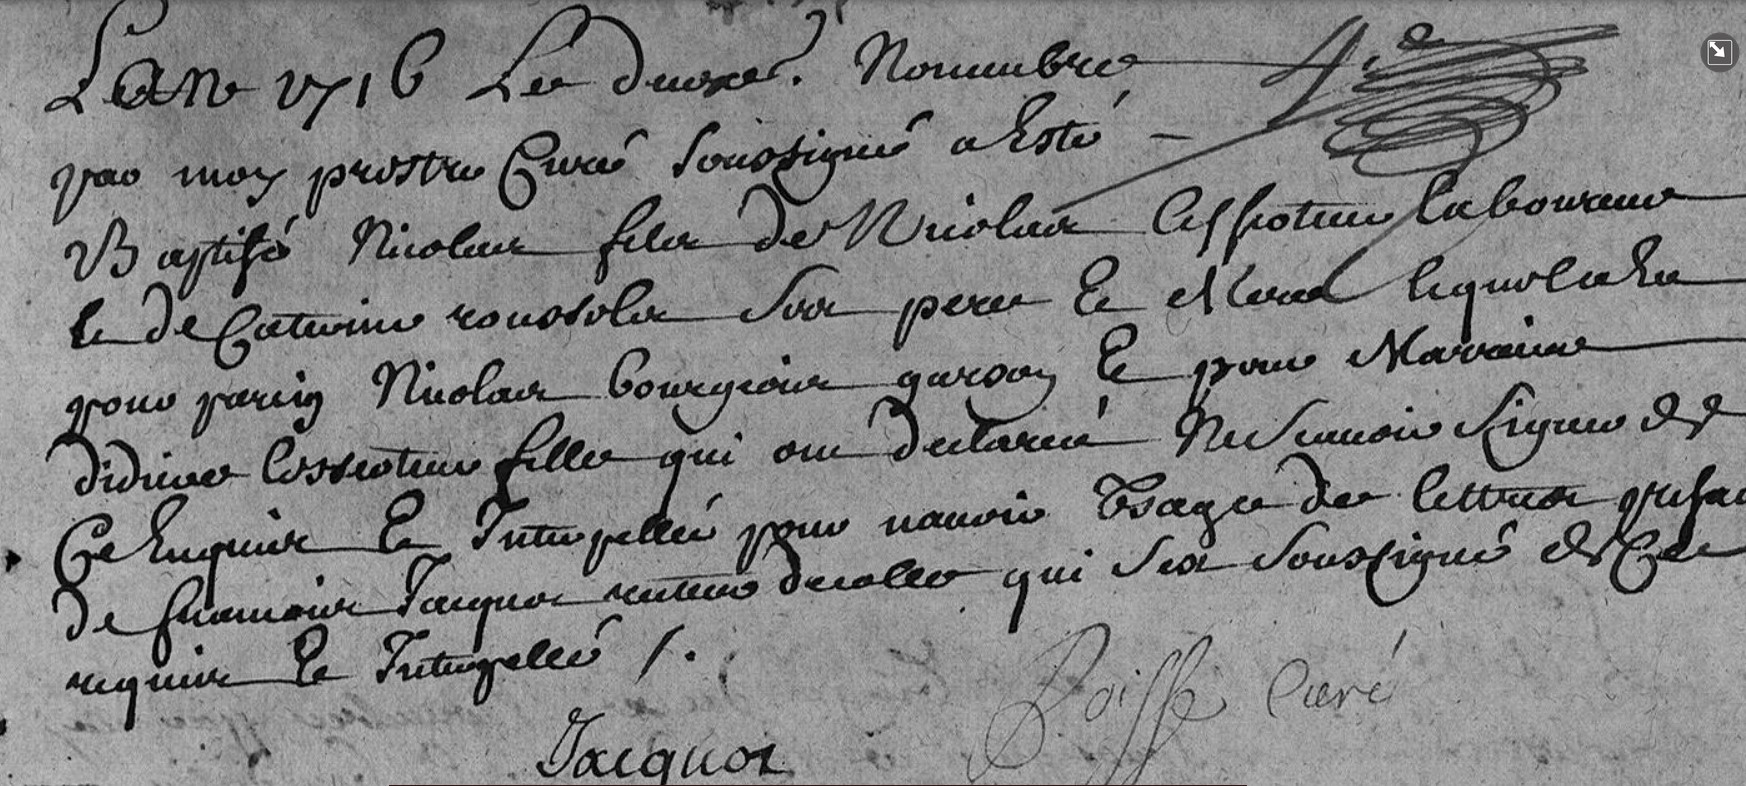 Lan 1716 Le deuxe. Nouembre
par moy prestre Curé soussigné a Esté
Baptisé Nicolas fils de Nicolas laboureur
et de Caterine rousselo ses pere Et Mere lequel a Eu
pour parein Nicolas bourgeois garson Et pour Maraine
didiere Cosserotene fille qui ont declareé Ne scauoir signer de
Ce Enquis Et Interpelleé pour nauoir Vsage de lettres
de francois Jacquot recteur decolle qui sest soussigné de Ce
requis Et Interpellé /.
Jacquot
Poisse Curé